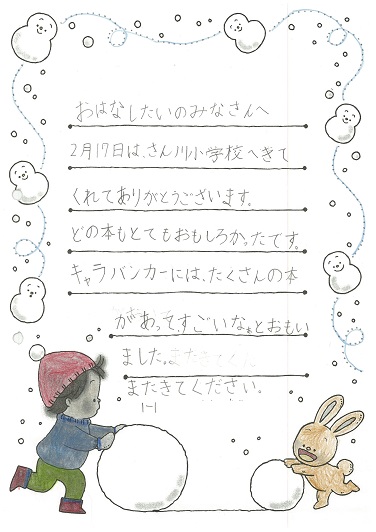 おはなしたいのみなさんへ
2月17日は、さん川小学校へきて
くれてありがとうございます。
どの本もとてもおもしろかったです。
キャラバンカーには、たくさんの本
があって、すごいなぁとおもい
ました。
またきてください。
1-1